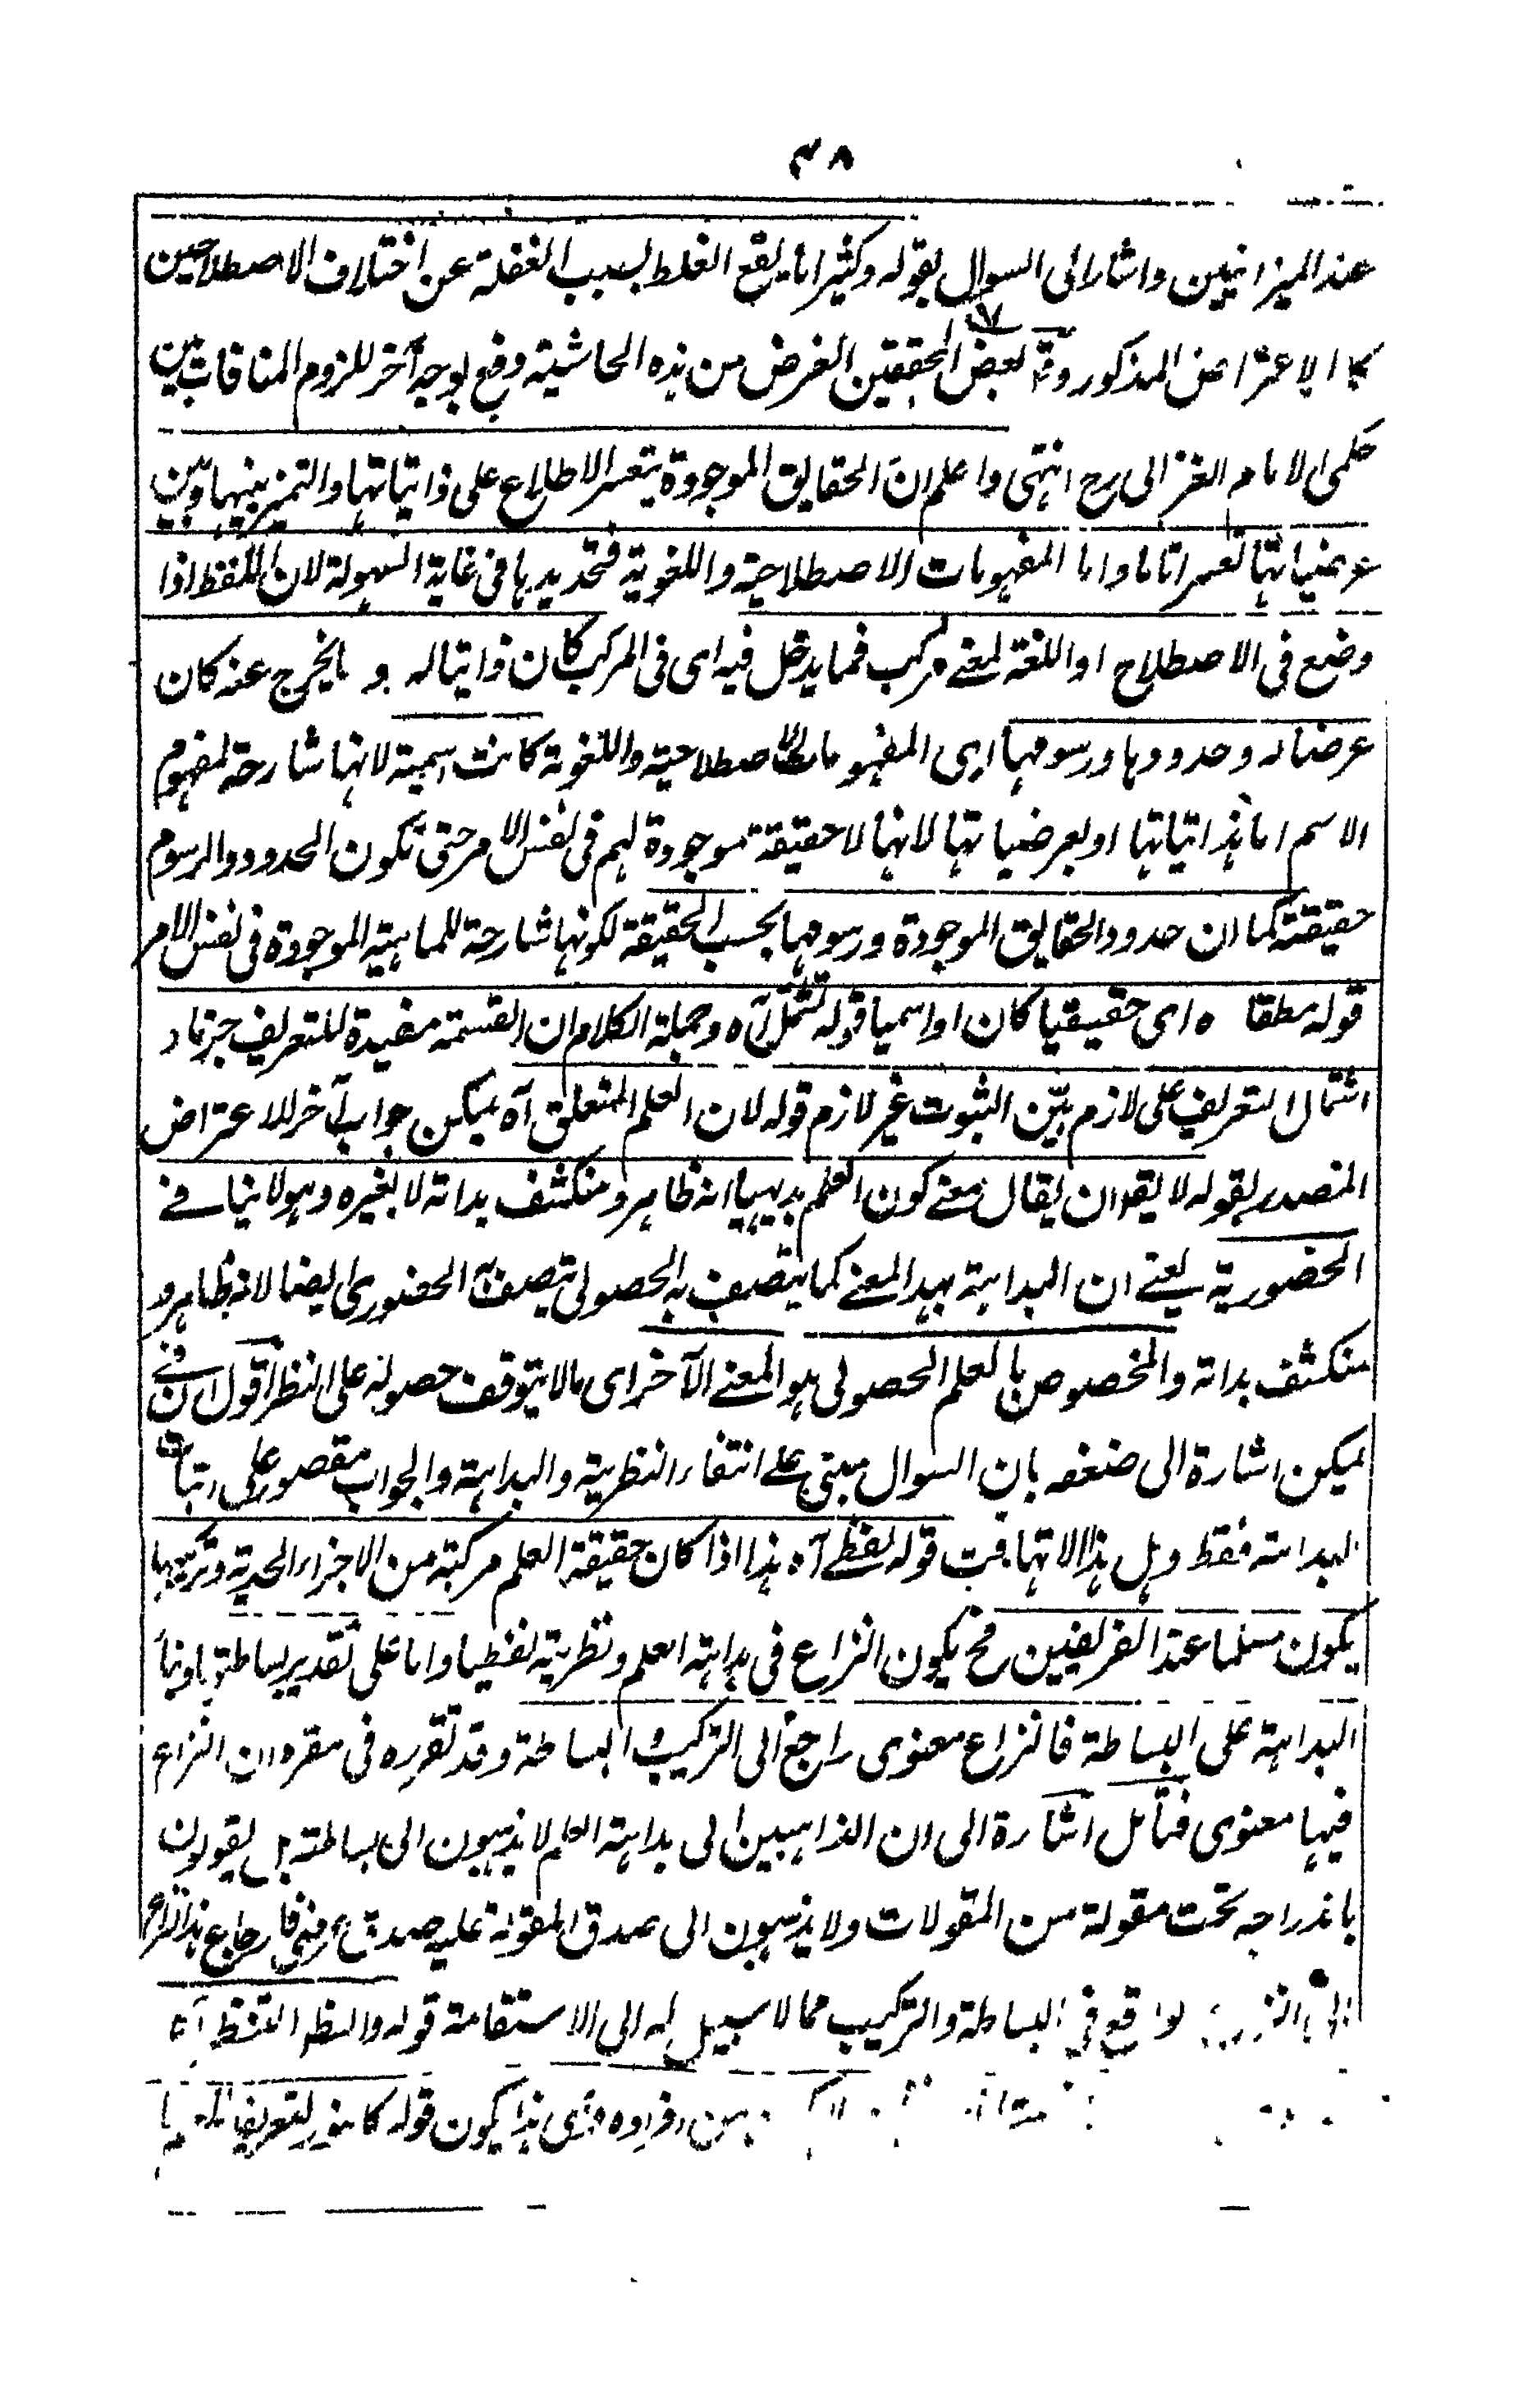 ٣٨
عند الميزانيين واشار الى السوال بقوله وكثيرا ما يقع الغلط بسبب الغفلة عن اختلاف الاصطلاحين
كالاعتراض المذكور وقال بعض المحققين الغرض من هذه الحاشية دفع بوجه آخر للزوم المنافات بين
حكمى الامام الغزالى رح انتهى واعلم ان الحقايق الموجودة يتعسر الاطلاع على ذاتياتها والتميز بينها وبين
عرضياتها تعسرا تاما واما المفهومات الاصطلاحية واللغوية فتحديدها فى غاية السهولة لان اللفظ اذا
وضع فى الاصطلاح او اللغة لمعنے مركب فما يدخل فيه اى فى المركب كان ذاتيا له و ما يخرج عنه كان
عرضا له وحدودها ورسومها اى المفهومات الاصطلاحية واللغوية كانت اسمية لانها شارحة لمفهوم
الاسم اما بذاتياتها او بعرضياتها لانها لا حقيقة موجودة لهم فى نفس الامر حتى تكون الحدود والرسوم
حقيقة كما ان حدود الحقايق الموجودة ورسومها بحسب الحقيقة لكونها شارحة للماهية الموجودة فى نفس الامر
قوله مطلقا ه اى حقيقيا كان او اسميا قوله تشتمل آه وجملة الكلام ان القسمة مفيدة للتعريف جزما و
اشتمال التعريف على لازم بيّن الثبوت غير لازم قوله لان العلم المتعلق آه يمكن جواب آخر للاعتراض
المتصدر بقوله لا يقو ان يقال معنے كون العلم بديهيا انه ظاهر ومنكشف بذاته لا بغيره وهو لا ينافے
الحضورية يعنے ان البداهة بهذا المعنے كما يتصف به الحصولى يتصف به الحضورى ايضا لانه ظاهر و
منكشف بذاته والمخصوص بالعلم الحصولى هو المعنے الآخر اى ما لا يتوقف حصوله على النظر اقول ان فے
يمكن اشارة الى ضعفه بان السوال مبنى علے انتفاء النظرية والبداهة والجواب مقصور على اثبات
البداهة فقط وهل هذا الا تهافت قوله لفظے آه هذا اذا كان حقيقة العلم مركبة من الاجزاء الحدية وتركيبها
يكون مسلما عند الفريقين فح يكون النزاع فى بداهة العلم ونظريته لفظيا واما على تقدير بساطتها وبناء
البداهة على البساطة فالنزاع معنوى راجع الى التركيب والبساطة وقد تقرره فى مقره ان النزاع
فيها معنوى فتأمل اشارة الى ان الذاهبين الى بداهة العلم لا يذهبون الى بساطته بل يقولون
باندراجه تحت مقولة من المقولات ولا يذهبون الى صدق المقولة عليه صدق عرضى فارجاع هذا النزاع
الى النزاع الواقع فى البساطة والتركيب مما لا سبيل له الى الاستقامة قوله والنظر اللفظ آه
من افراده هذا يكون قوله كانه تعريف